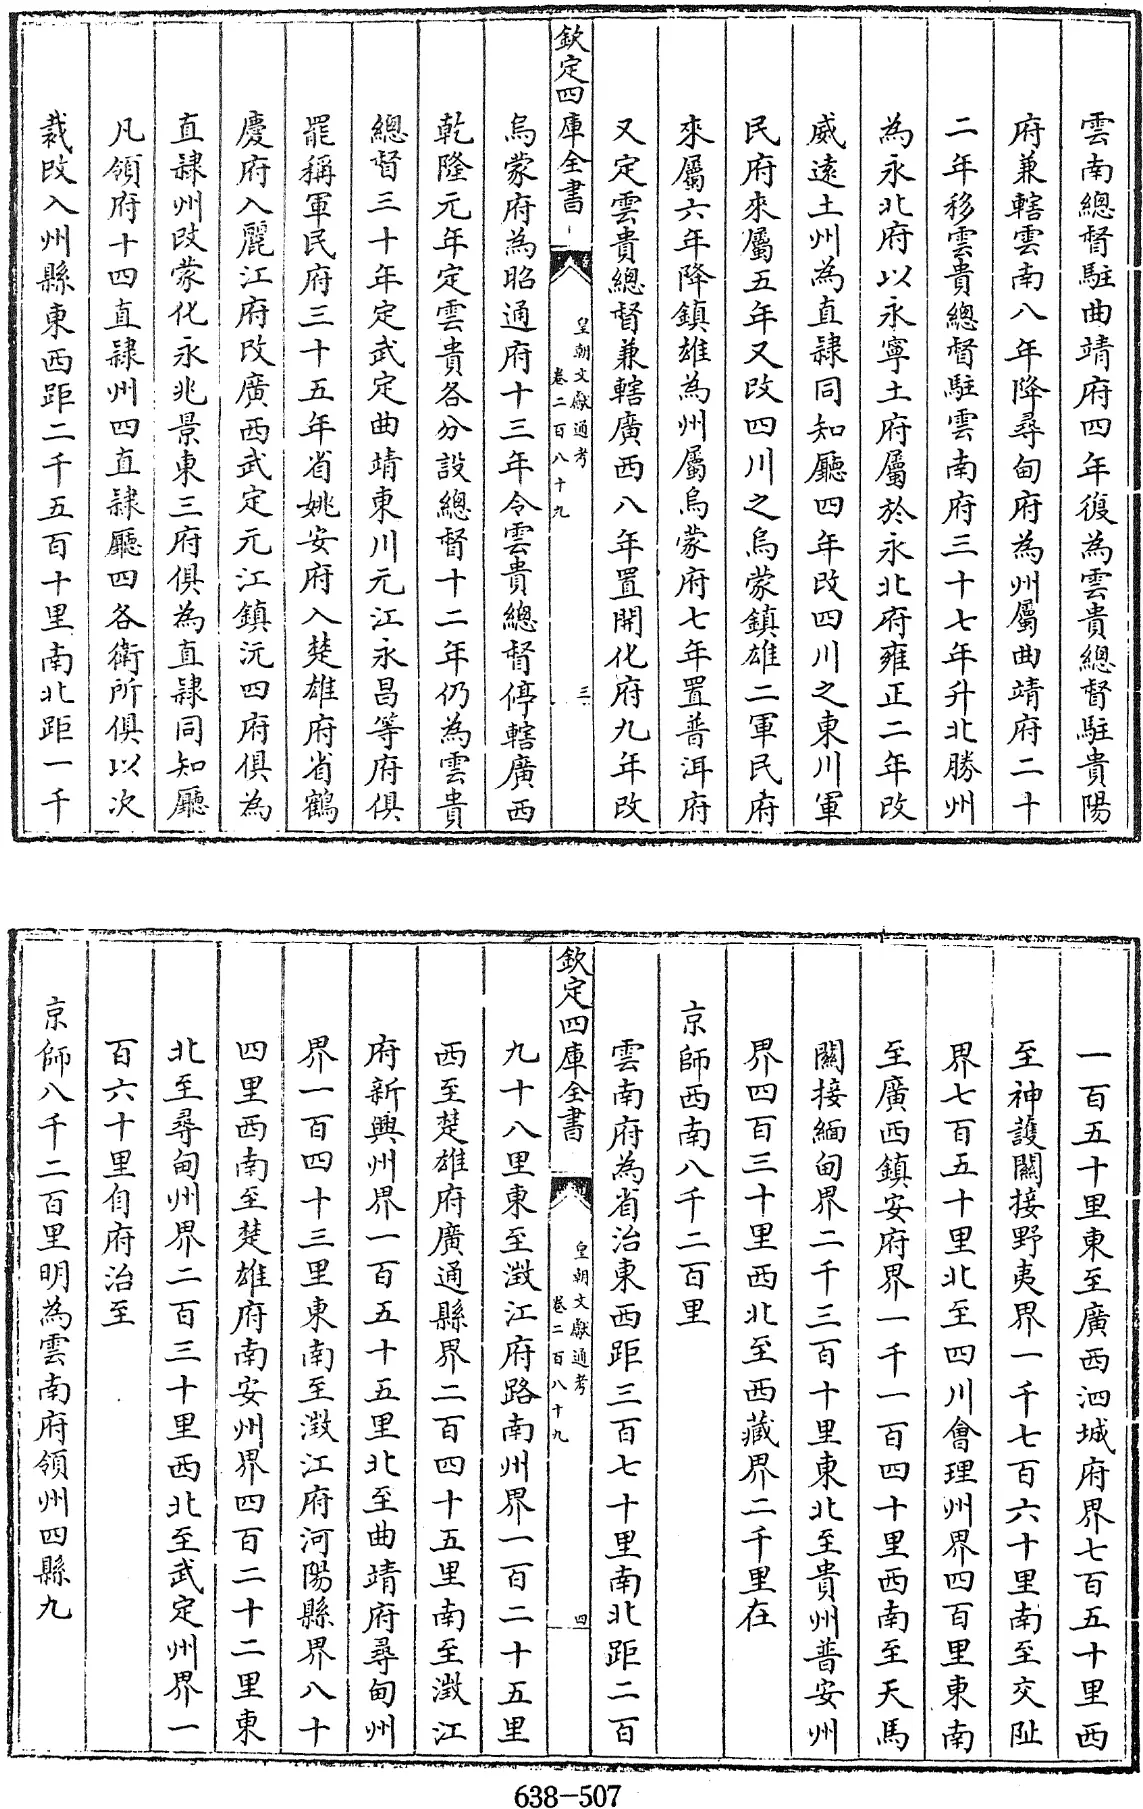 雲南總督駐曲靖府四年復為雲貴總督駐貴陽
府兼轄雲南八年降尋甸府為州屬曲靖府二十
二年移雲貴總督駐雲南府三十七年升北勝州
為永北府以永寧土府屬於永北府雍正二年改
威遠土州為直隸同知廳四年改四川之東川軍
民府來屬五年又改四川之烏蒙鎮雄二軍民府
來屬六年降鎮雄為州屬烏蒙府七年置普洱府
又定雲貴總督兼轄廣西八年置開化府九年改
欽定四庫全書
皇朝文獻通考
卷二百八十九
三
烏蒙府為昭通府十三年令雲貴總督停轄廣西
乾隆元年定雲貴各分設總督十二年仍為雲貴
總督三十年定武定曲靖東川元江永昌等府俱
罷稱軍民府三十五年省姚安府入楚雄府省鶴
慶府入麗江府改廣西武定元江鎮沅四府俱為
直隸州改蒙化永北景東三府俱為直隸同知廳
凡領府十四直隸州四直隸廳四各衛所俱以次
裁改入州縣東西距二千五百十里南北距一千
一百五十里東至廣西泗城府界七百五十里西
至神護關接野夷界一千七百六十里南至交阯
界七百五十里北至四川會理州界四百里東南
至廣西鎮安府界一千一百四十里西南至天馬
關接緬甸界二千三百十里東北至貴州普安州
界四百三十里西北至西藏界二千里在
京師西南八千二百里
雲南府為省治東西距三百七十里南北距二百
欽定四庫全書
皇朝文獻通考
卷二百八十九
四
九十八里東至澂江府路南州界一百二十五里
西至楚雄府廣通縣界二百四十五里南至澂江
府新興州界一百五十五里北至曲靖府尋甸州
界一百四十三里東南至澂江府河陽縣界八十
四里西南至楚雄府南安州界四百二十二里東
北至尋甸州界二百三十里西北至武定州界一
百六十里自府治至
京師八千二百里明為雲南府領州四縣九
638-507